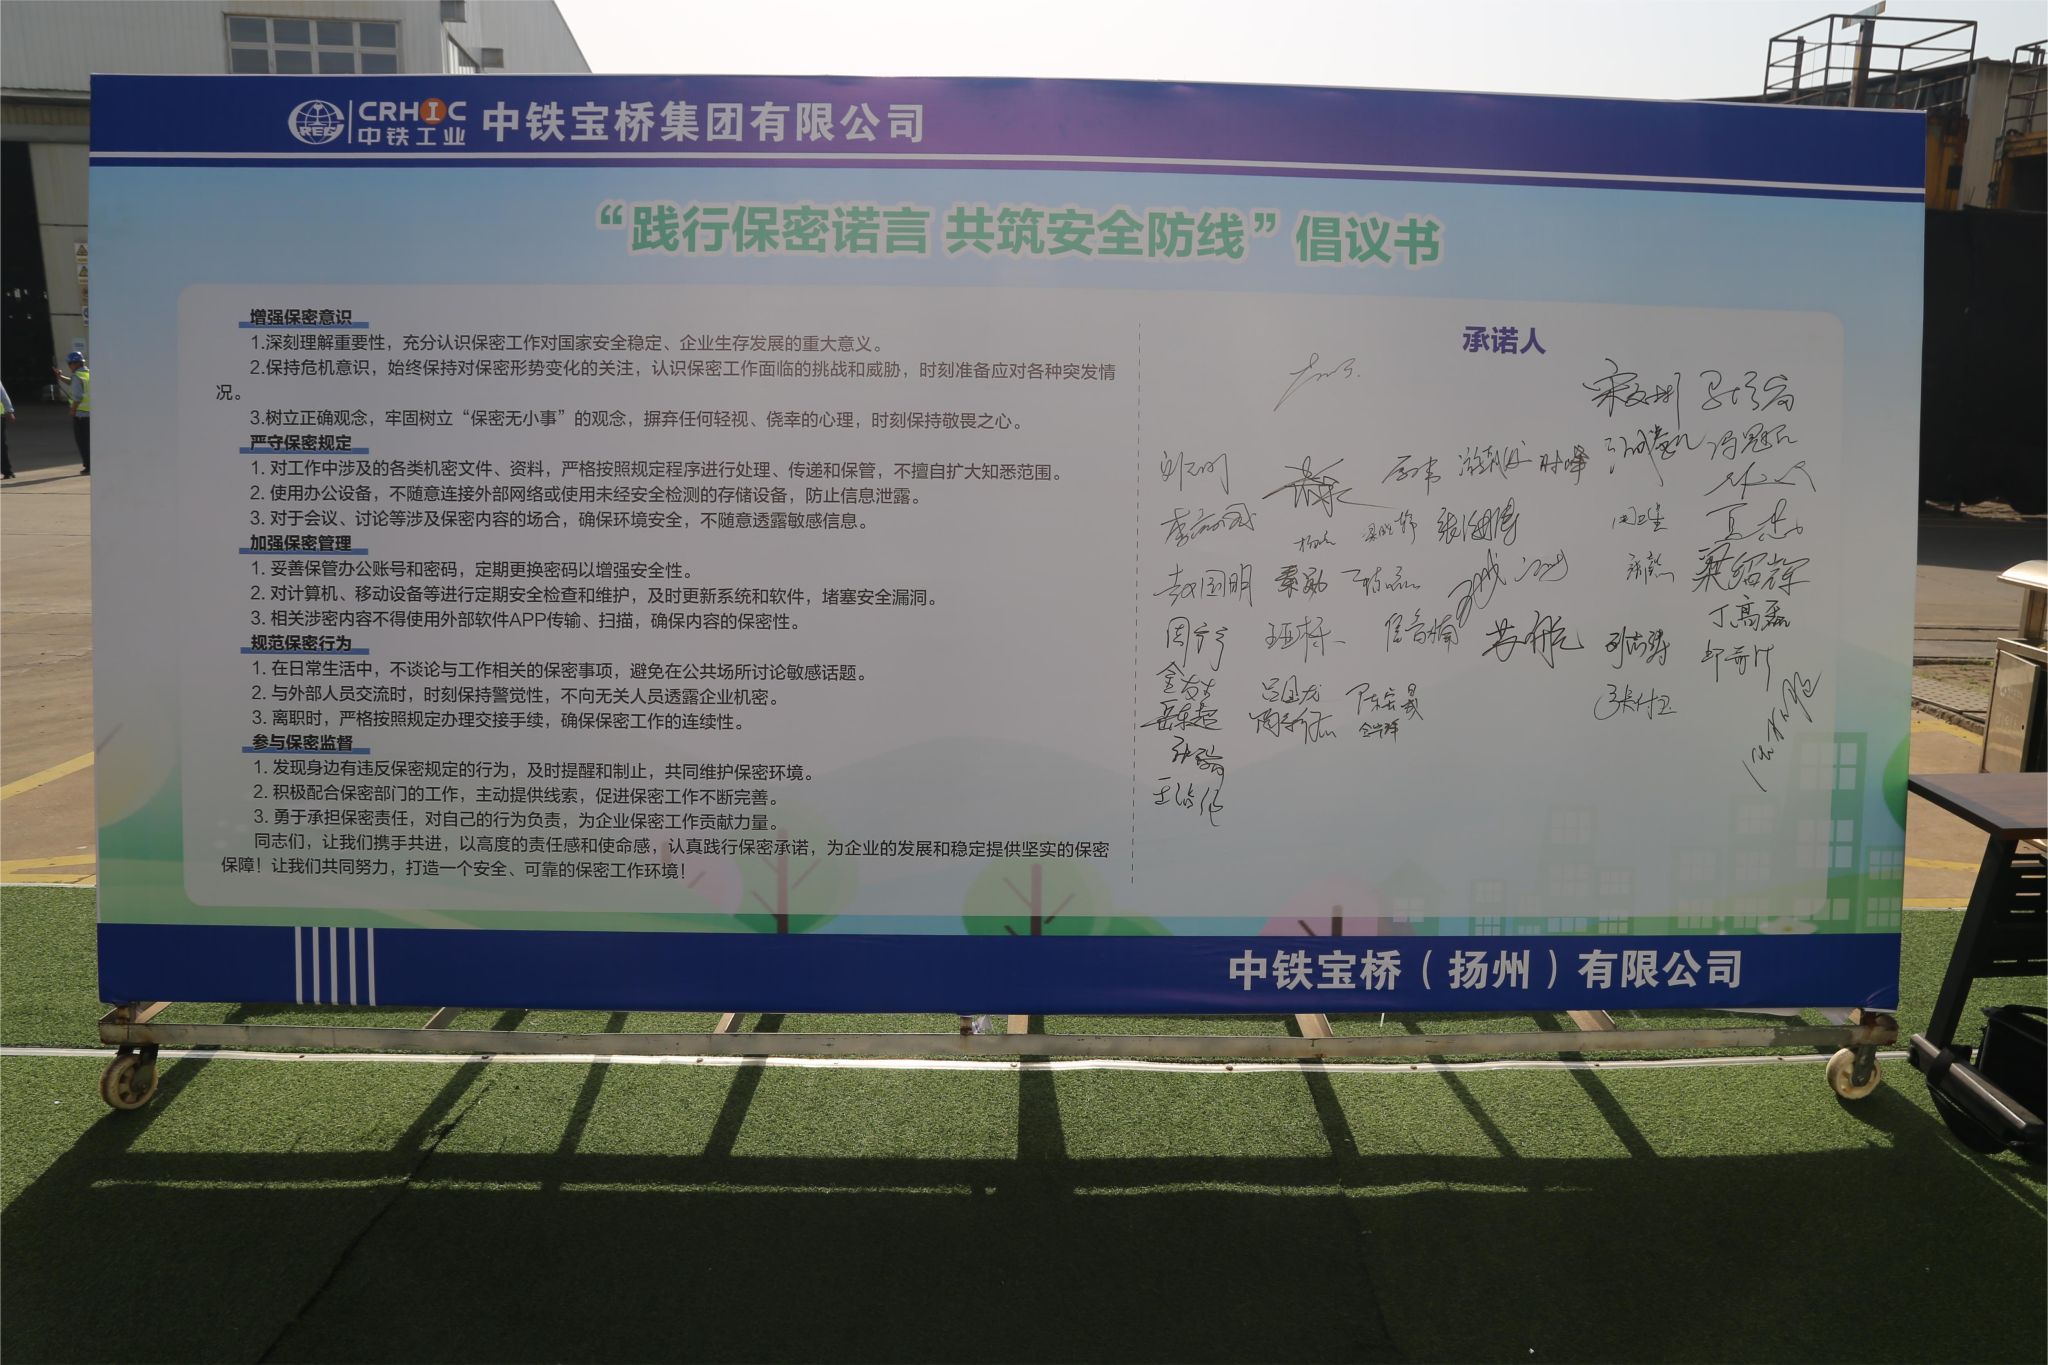 CRHIC
中铁工业
中铁宝桥集团有限公司
“践行保密诺言 共筑安全防线”倡议书
增强保密意识
1.深刻理解重要性，充分认识保密工作对国家安全稳定、企业生存发展的重大意义。
2.保持危机意识，始终保持对保密形势变化的关注，认识保密工作面临的挑战和威胁，时刻准备应对各种突发情
况。
3.树立正确观念，牢固树立“保密无小事”的观念，摒弃任何轻视、侥幸的心理，时刻保持敬畏之心。
严守保密规定
1. 对工作中涉及的各类机密文件、资料，严格按照规定程序进行处理、传递和保管，不擅自扩大知悉范围。
2. 使用办公设备，不随意连接外部网络或使用未经安全检测的存储设备，防止信息泄露。
3. 对于会议、讨论等涉及保密内容的场合，确保环境安全，不随意透露敏感信息。
加强保密管理
1. 妥善保管办公账号和密码，定期更换密码以增强安全性。
2. 对计算机、移动设备等进行定期安全检查和维护，及时更新系统和软件，堵塞安全漏洞。
3. 相关涉密内容不得使用外部软件APP传输、扫描，确保内容的保密性。
规范保密行为
1. 在日常生活中，不谈论与工作相关的保密事项，避免在公共场所讨论敏感话题。
2. 与外部人员交流时，时刻保持警觉性，不向无关人员透露企业机密。
3. 离职时，严格按照规定办理交接手续，确保保密工作的连续性。
参与保密监督
1. 发现身边有违反保密规定的行为，及时提醒和制止，共同维护保密环境。
2. 积极配合保密部门的工作，主动提供线索，促进保密工作不断完善。
3. 勇于承担保密责任，对自己的行为负责，为企业保密工作贡献力量。
同志们，让我们携手共进，以高度的责任感和使命感，认真践行保密承诺，为企业的发展和稳定提供坚实的保密
保障！让我们共同努力，打造一个安全、可靠的保密工作环境！
承诺人
张海博
赵国明
秦勋
梁绍辉
丁高磊
苏航
吕国龙
岳东超
中铁宝桥（扬州）有限公司